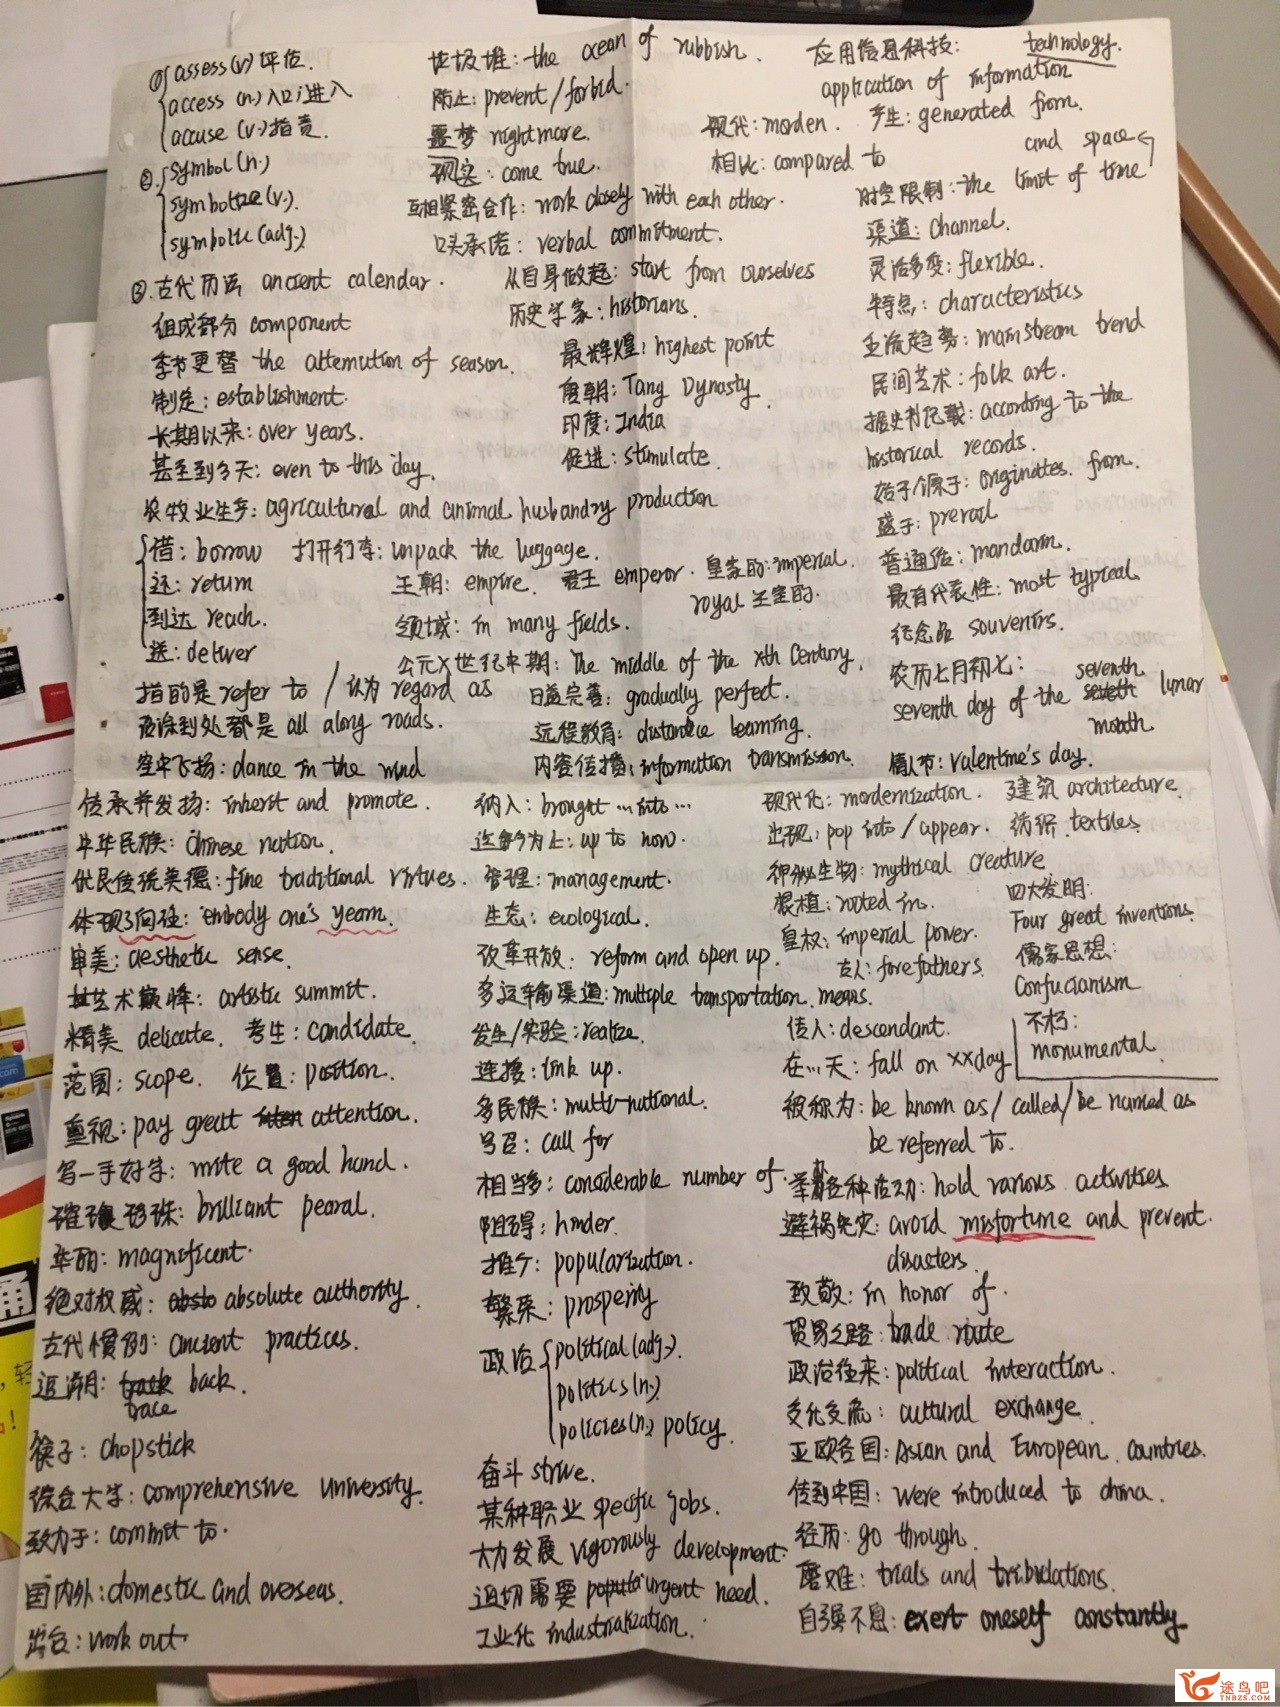 ① assess(v.)评估.
access (n.)入口;进入
accuse (v.)指责.
② symbol(n.)
symbolize(v.)
symbolic(adj.)
③ 古代历法 ancient calendar.
组成部分 component
季节更替 the alternution of season.
制定: establishment.
长期以来: over years.
甚至到今天: even to this day.
农牧业生产: agricultural and animal husbandry production
借: borrow 打开行李: unpack the luggage.
还: return
到达 reach.
送: deliver
王朝: empire. 君王 emperor. 皇家的: imperial.
royal 王室的.
领域: in many fields.
公元X世纪中期: The middle of the xth Century.
指的是 refer to / 认为 regard as
日益完善: gradually perfect.
沿途到处都是 all along roads.
远程教育: distance learning.
空中飞扬: dance in the wind
内容传播: information transmission.
垃圾堆: the ocean of rubbish.
防止: prevent/forbid.
噩梦 nightmare.
现实: come true.
互相紧密合作: work closely with each other.
口头承诺: verbal commitment.
从自身做起: start from ourselves
历史学家: historians.
最辉煌: highest point
唐朝: Tang Dynasty.
印度: India
促进: stimulate.
应用信息科技:
application of information technology.
现代: morden. 产生: generated from.
相比: compared to
时空限制: the limit of time and space
渠道: channel.
灵活多变: flexible.
特点: characteristics
主流趋势: mainstream trend
民间艺术: folk art.
据史书记载: according to the
historical records.
始于/源于: originates from.
盛于: prevail
普通话: mandarin.
最有代表性: most typical.
纪念品 souvenirs.
农历七月初七:
seventh day of the seventh lunar
month
情人节: valentine's day.
传承并发扬: inherit and promote.
中华民族: Chinese nation.
优良传统美德: fine traditional virtues.
体现了向往: embody one's yearn.
审美: aesthetic sense.
艺术巅峰: artistic summit.
精美 delicate. 考生: candidate.
范围: scope. 位置: position.
重视: pay great attention.
写一手好字: write a good hand.
璀璨珍珠: brilliant pearal.
华丽: magnificent.
绝对权威: absolute authority.
古代惯例: ancient practices.
追溯: trace back.
筷子: chopstick
综合大学: comprehensive university.
致力于: commit to.
国内外: domestic and overseas.
出台: work out.
纳入: brought ... into ...
迄今为止: up to now.
管理: management.
生态: ecological.
改革开放: reform and open up.
多运输渠道: multiple transportation means.
发生/实验: realize.
连接: link up.
多民族: multi-national.
号召: call for
相当多: considerable number of.
阻碍: hinder.
推广: popularization.
繁荣: prosperity
政治 political(adj.)
politics(n.)
policies(n.) policy.
奋斗 strive.
某种职业 specific jobs.
大力发展 vigorously development.
迫切需要 urgent need.
工业化 industrialization.
现代化: mordernization. 建筑 architecture.
出现: pop into/appear. 纺织 textiles.
神秘生物: mythical creature
根植: rooted in.
四大发明:
Four great inventions.
皇权: imperial power.
古人: forefathers.
儒家思想:
Confucianism
传人: descendant.
在...天: fall on xxday
不朽:
monumental.
被称为: be known as/called/be named as
be referred to.
举办各种活动: hold various activities
避祸免灾: avoid misfortune and prevent
disasters.
致敬: in honor of.
贸易之路: trade route
政治往来: political interaction.
文化交流: cultural exchange.
亚欧各国: Asian and European countries.
传到中国: were introduced to china.
经历: go through.
磨难: trials and tribulations.
自强不息: exert oneself constantly
途鸟吧
TNBZS.COM